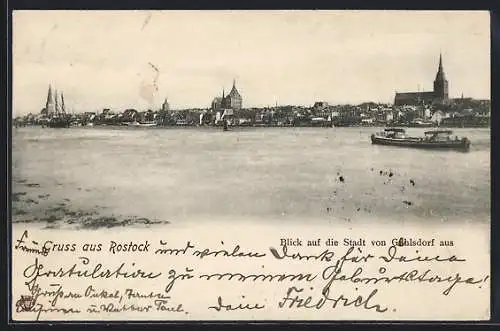 Gruss aus Rostock
Blick auf die Stadt von Gehlsdorf aus
und vielen Dank für deine
Gratulation zu meinem Geburtstage!
Grüssen Onkel, Tanten
u Mutter
Dein Friedrich